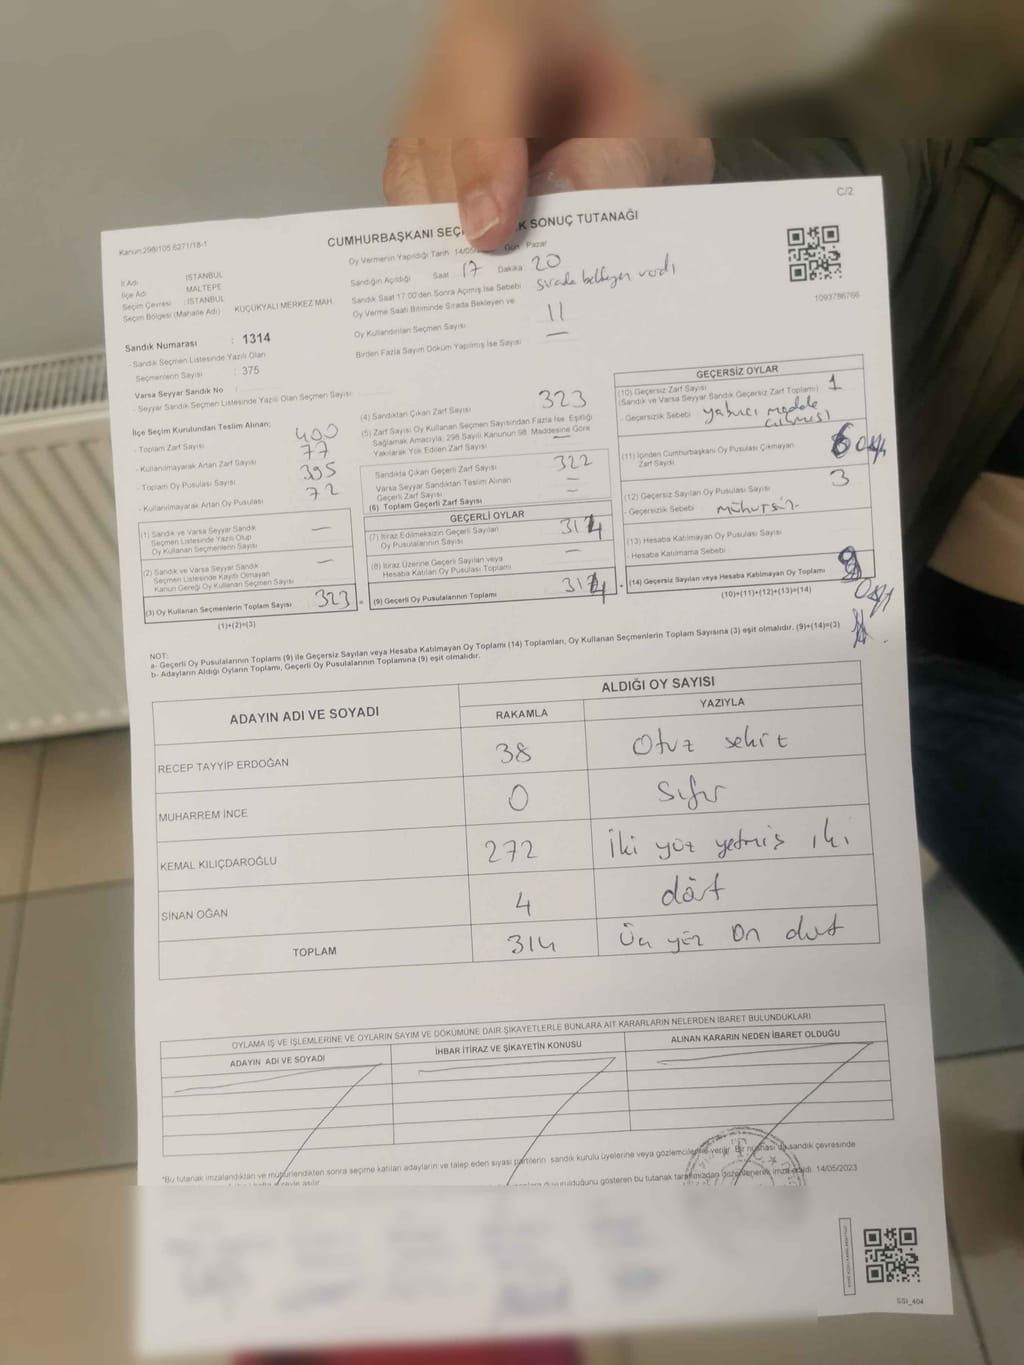 C/2
Kanun:298/105,6271/18-1
CUMHURBAŞKANI SONUÇ TUTANAĞI
Oy Vermenin Yapıldığı Tarih 14/05 Gün Pazar
İl Adı İSTANBUL
İlçe Adı MALTEPE
Seçim Çevresi : İSTANBUL
Seçim Bölgesi (Mahalle Adı) KÜÇÜKYALI MERKEZ MAH.
Sandık Numarası : 1314
- Sandık Seçmen Listesinde Yazılı Olan
Seçmenlerin Sayısı : 375
Varsa Seyyar Sandık No :
- Seyyar Sandık Seçmen Listesinde Yazılı Olan Seçmen Sayısı :
Sandığın Açıldığı Saat 17 Dakika 20
Sandık Saat 17:00'den Sonra Açımış İse Sebebi sırada bekleyen vardı
Oy Verme Saati Bitiminde Sırada Bekleyen ve
Oy Kullandırılan Seçmen Sayısı 11
Birden Fazla Sayım Döküm Yapılmış İse Sayısı —
1093786766
İlçe Seçim Kurulundan Teslim Alınan;
- Toplam Zarf Sayısı 400
- Kullanılmayarak Artan Zarf Sayısı 77
- Toplam Oy Pusulası Sayısı 395
- Kullanılmayarak Artan Oy Pusulası 72
(1) Sandık ve Varsa Seyyar Sandık
Seçmen Listesinde Yazılı Olup
Oy Kullanan Seçmenlerin Sayısı —
(2) Sandık ve Varsa Seyyar Sandık
Seçmen Listesinde Kayıtlı Olmayan
Kanun Gereği Oy Kullanan Seçmen Sayısı —
(3) Oy Kullanan Seçmenlerin Toplam Sayısı 323
(1)+(2)=(3)
(4) Sandıktan Çıkan Zarf Sayısı 323
(5) Zarf Sayısı Oy Kullanan Seçmen Sayısından Fazla İse Eşitliği
Sağlamak Amacıyla, 298 Sayılı Kanunun 98. Maddesine Göre
Yakılarak Yok Edilen Zarf Sayısı —
Sandıkta Çıkan Geçerli Zarf Sayısı 322
Varsa Seyyar Sandıktan Teslim Alınan
Geçerli Zarf Sayısı —
(6) Toplam Geçerli Zarf Sayısı —
GEÇERLİ OYLAR
(7) İtiraz Edilmeksizin Geçerli Sayılan
Oy Pusulalarının Sayısı 314
(8) İtiraz Üzerine Geçerli Sayılan veya
Hesaba Katılan Oy Pusulası Toplamı —
= (9) Geçerli Oy Pusulalarının Toplamı 314
GEÇERSİZ OYLAR
(10) Geçersiz Zarf Sayısı
(Sandık ve Varsa Seyyar Sandık Geçersiz Zarf Toplamı) 1
- Geçersizlik Sebebi yabancı madde
(11) İçinden Cumhurbaşkanı Oy Pusulası Çıkmayan
Zarf Sayısı
(12) Geçersiz Sayılan Oy Pusulası Sayısı 3
- Geçersizlik Sebebi mühürsüz
(13) Hesaba Katılmayan Oy Pusulası Sayısı
- Hesaba Katılmama Sebebi
+ (14) Geçersiz Sayılan veya Hesaba Katılmayan Oy Toplamı 9
(10)+(11)+(12)+(13)=(14)
NOT:
a- Geçerli Oy Pusulalarının Toplamı (9) ile Geçersiz Sayılan veya Hesaba Katılmayan Oy Toplamı (14) Toplamları, Oy Kullanan Seçmenlerin Toplam Sayısına (3) eşit olmalıdır. (9)+(14)=(3)
b- Adayların Aldığı Oyların Toplamı, Geçerli Oy Pusulalarının Toplamına (9) eşit olmalıdır.
ADAYIN ADI VE SOYADI
ALDIĞI OY SAYISI
RAKAMLA YAZIYLA
RECEP TAYYİP ERDOĞAN 38 Otuz sekiz
MUHARREM İNCE 0 Sıfır
KEMAL KILIÇDAROĞLU 272 İki yüz yetmiş iki
SİNAN OĞAN 4 dört
TOPLAM 314 Üç yüz on dört
OYLAMA İŞ VE İŞLEMLERİNE VE OYLARIN SAYIM VE DÖKÜMÜNE DAİR ŞİKAYETLERLE BUNLARA AİT KARARLARIN NELERDEN İBARET BULUNDUKLARI
ADAYIN ADI VE SOYADI İHBAR İTİRAZ VE ŞİKAYETİN KONUSU ALINAN KARARIN NEDEN İBARET OLDUĞU
*Bu tutanak imzalandıktan ve mühürlendikten sonra seçime katılan adayların ve talep eden siyasi partilerin sandık kurulu üyelerine veya gözlemcilerine verilir. Bir nüshası da sandık çevresinde
duyurulduğunu gösteren bu tutanak tarafımızdan düzenlenerek imza edildi. 14/05/2023
SSI_404